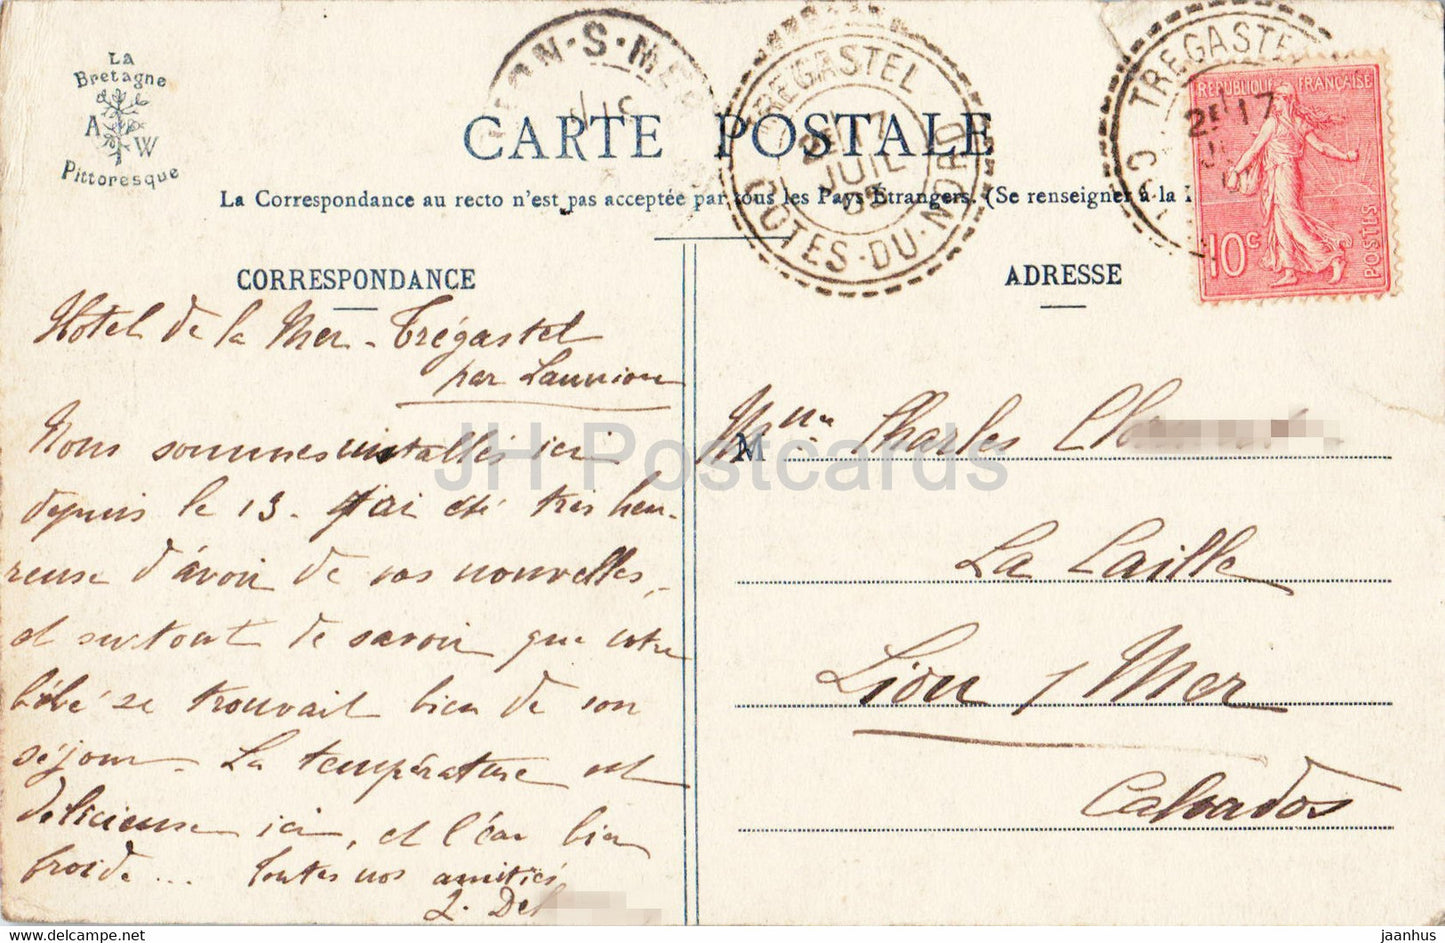 La
Bretagne
A
W
Pittoresque
ION-S-MER
CARTE POSTALE
TREGASTEL
2E 17
JUIL
05
COTES-DU-NORD
TREGASTEL
2E 17
REPUBLIQUE FRANÇAISE
10c
POSTES
La Correspondance au recto n'est pas acceptée par tous les Pays Étrangers. (Se renseigner à la
CORRESPONDANCE
ADRESSE
Hotel de la Mer - Trégastel
par Lannion
Nous sommes installés ici
depuis le 13. J'ai été très heu-
reuse d'avoir de vos nouvelles,
et surtout de savoir que votre
bébé se trouvait bien de son
séjour. La température est
délicieuse ici, et l'eau bien
froide... Toutes nos amitiés
Del
Mme Charles Cl
La Caille
Lion s/ Mer
Calvados
JH Postcards
www.jhpostcard.com
jaanhus